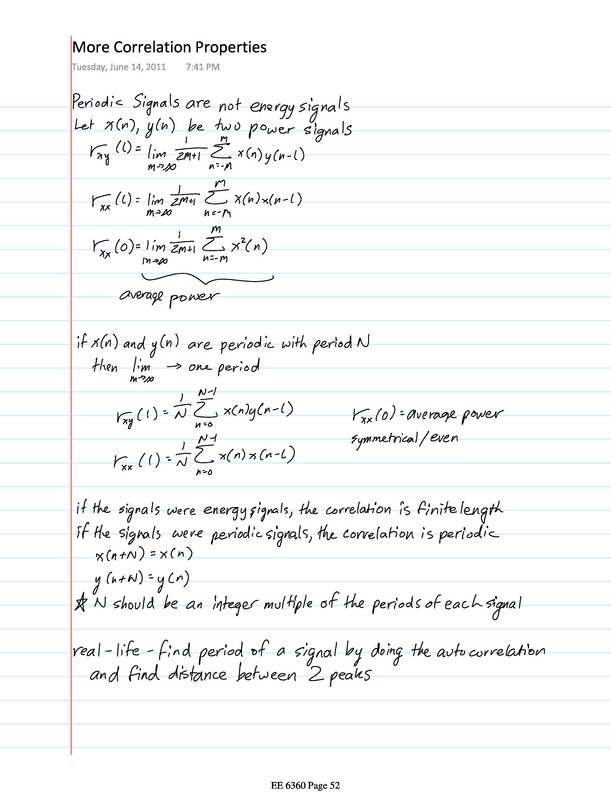 More Correlation Properties
Tuesday, June 14, 2011 7:41 PM
Periodic Signals are not energy signals
Let x(n), y(n) be two power signals
r_xy (l) = lim_{M→∞} 1/(2M+1) Σ_{n=-M}^{M} x(n)y(n-l)
r_xx (l) = lim_{M→∞} 1/(2M+1) Σ_{n=-M}^{M} x(n)x(n-l)
r_xx (0) = lim_{M→∞} 1/(2M+1) Σ_{n=-M}^{M} x²(n)
average power
if x(n) and y(n) are periodic with period N
then lim_{M→∞} → one period
r_xy (l) = 1/N Σ_{n=0}^{N-1} x(n)y(n-l)
r_xx (0) = average power
symmetrical/even
r_xx (l) = 1/N Σ_{n=0}^{N-1} x(n)x(n-l)
if the signals were energy signals, the correlation is finite length
if the signals were periodic signals, the correlation is periodic
x(n+N) = x(n)
y(n+N) = y(n)
☆ N should be an integer multiple of the periods of each signal
real-life - find period of a signal by doing the autocorrelation
and find distance between 2 peaks
EE 6360 Page 52